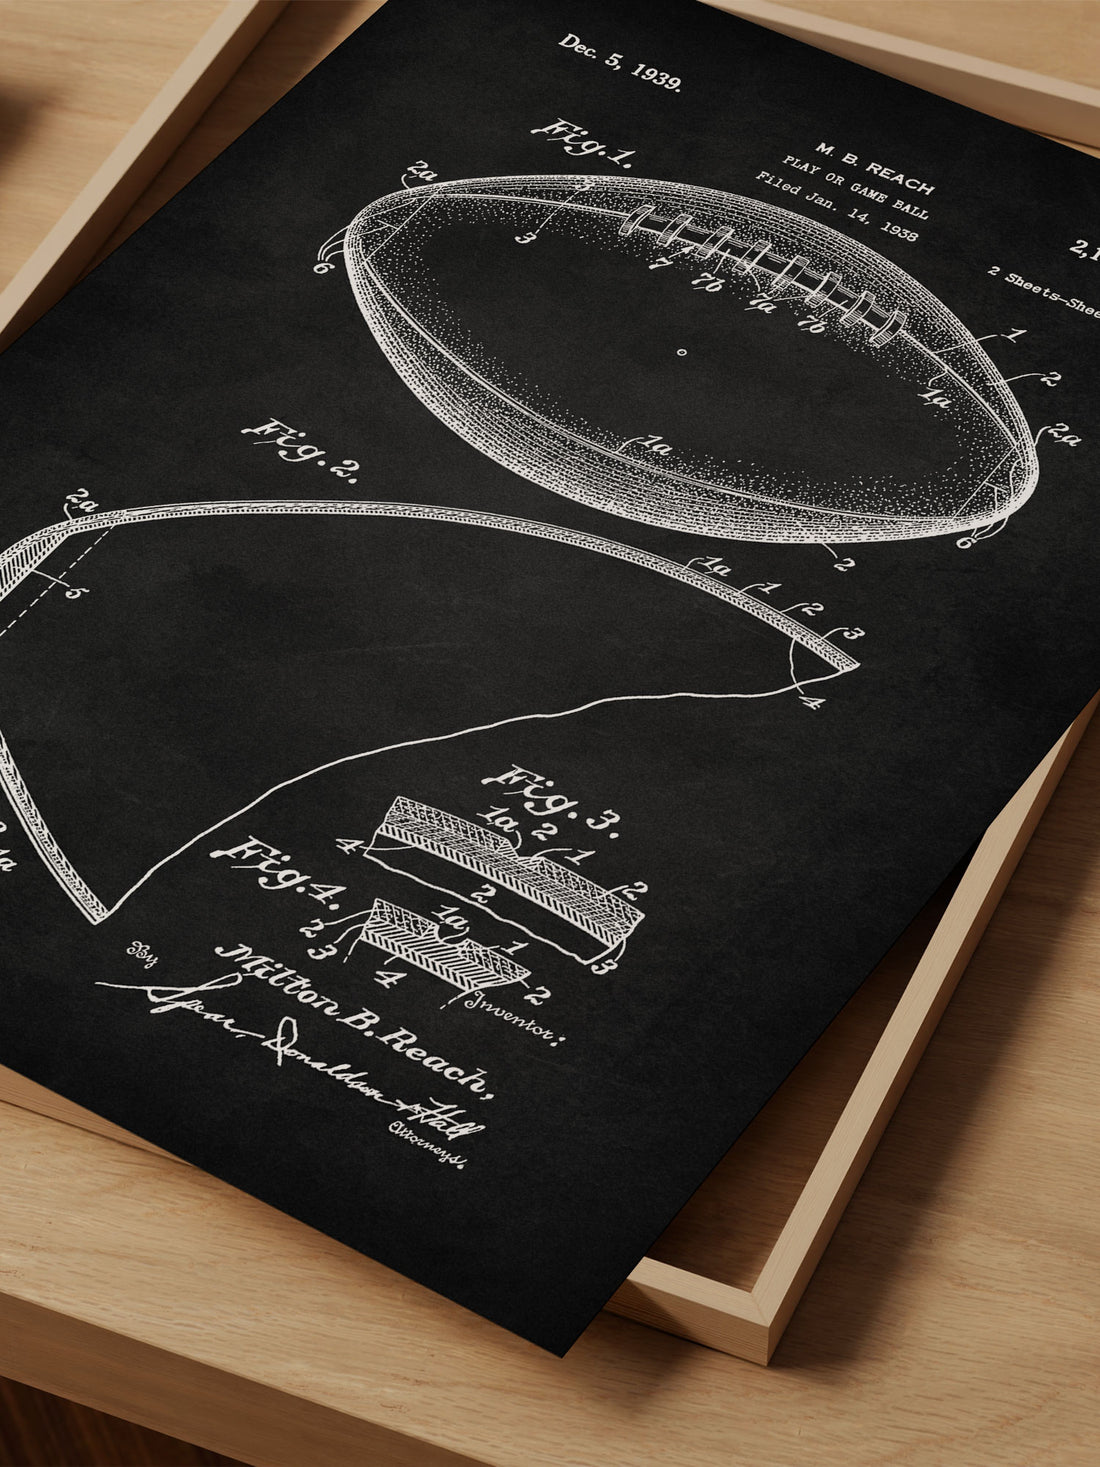 Dec. 5, 1939.
M. B. REACH
PLAY OR GAME BALL
Filed Jan. 14, 1938
2,1
2 Sheets-Shee
Fig.1.
2a
3
3
6
7
7b
7a
7b
1
2
1a
2a
1a
6
2
Fig.2.
2a
5
1a
1
2
3
4
1a
Fig. 3.
1a
2
1
4
2
2
3
Fig.4.
1a
2
3
4
1
2
Inventor:
Milton B. Reach,
By
Spear, Donaldson & Hall
Attorneys.